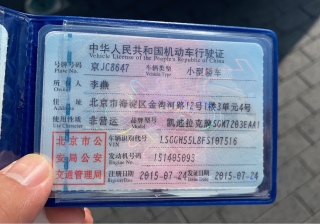 中华人民共和国机动车行驶证
Vehicle License of the People's Republic of China
号牌号码 京JC8647 车辆类型 小型轿车
Plate No. Vehicle Type
所有人 李燕
Owner
住址 北京市海淀区金沟河路12号1楼3单元4号
Address
使用性质 非营运 品牌型号 凯迪拉克牌SGM7203EAA1
Use Character Model
北京市公安局公安交通管理局
车辆识别代号 LSGGH55L8FS107516
VIN
发动机号码 151405093
Engine No.
注册日期 2015-07-24 发证日期 2015-07-24
Register Date Issue Date